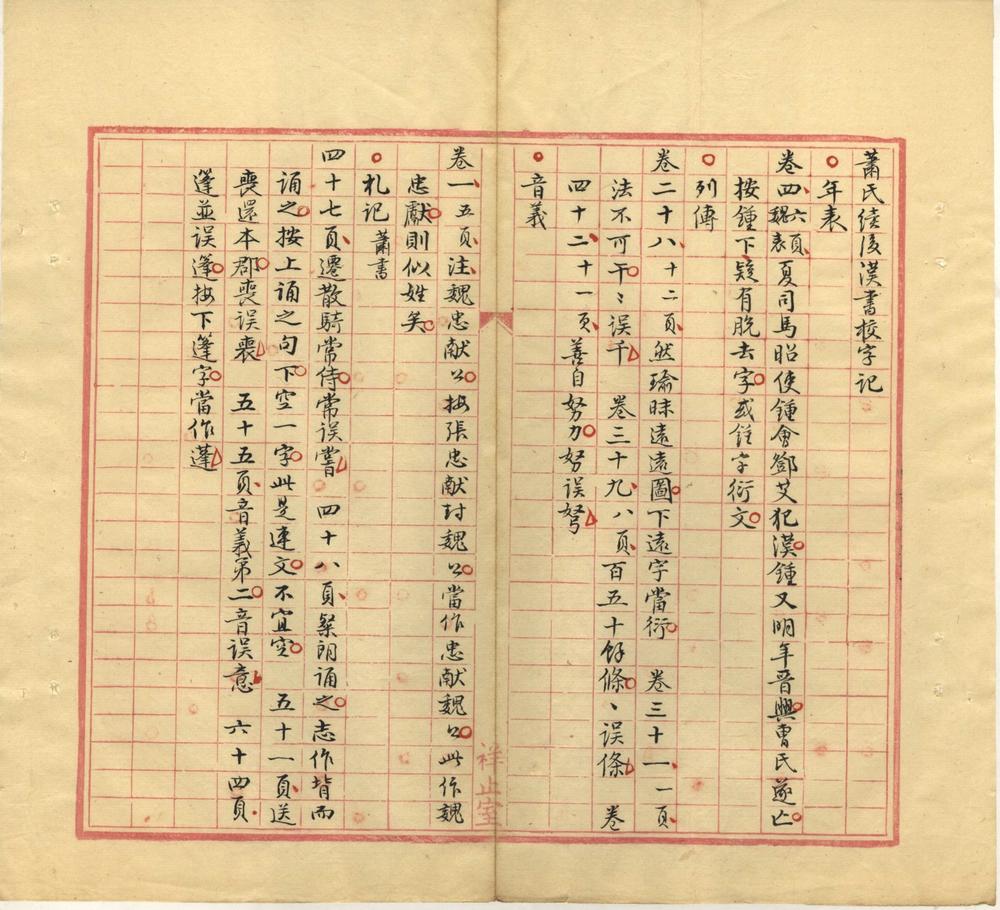 蕭氏続後漢書校字記
年表
卷四六頁魏表夏司馬昭使鍾會鄧艾犯漢鍾又明年晉興曹氏遂亡
按鍾下疑有脫去字或鍾字衍文
列傳
卷二十八十二頁然瑜昧遠遠圖下遠字當衍 卷三十一一頁
法不可干〻误千 卷三十九八頁百五十餘條、误條 卷
四十二十一頁善自努力努误弩
音義
卷一五頁注魏忠献公按張忠献封魏公當作忠献魏公此作魏
忠獻則似姓矣
札記蕭書
四十七頁遷散騎常侍常误嘗 四十八頁粲朗誦之志作背而
誦之按上誦之句下空一字此是連文不宜空 五十一頁送
喪還本郡喪误喪 五十五頁音義第二音误意 六十四頁
蓬並误蓬按下蓬字當作蓬
祥止室